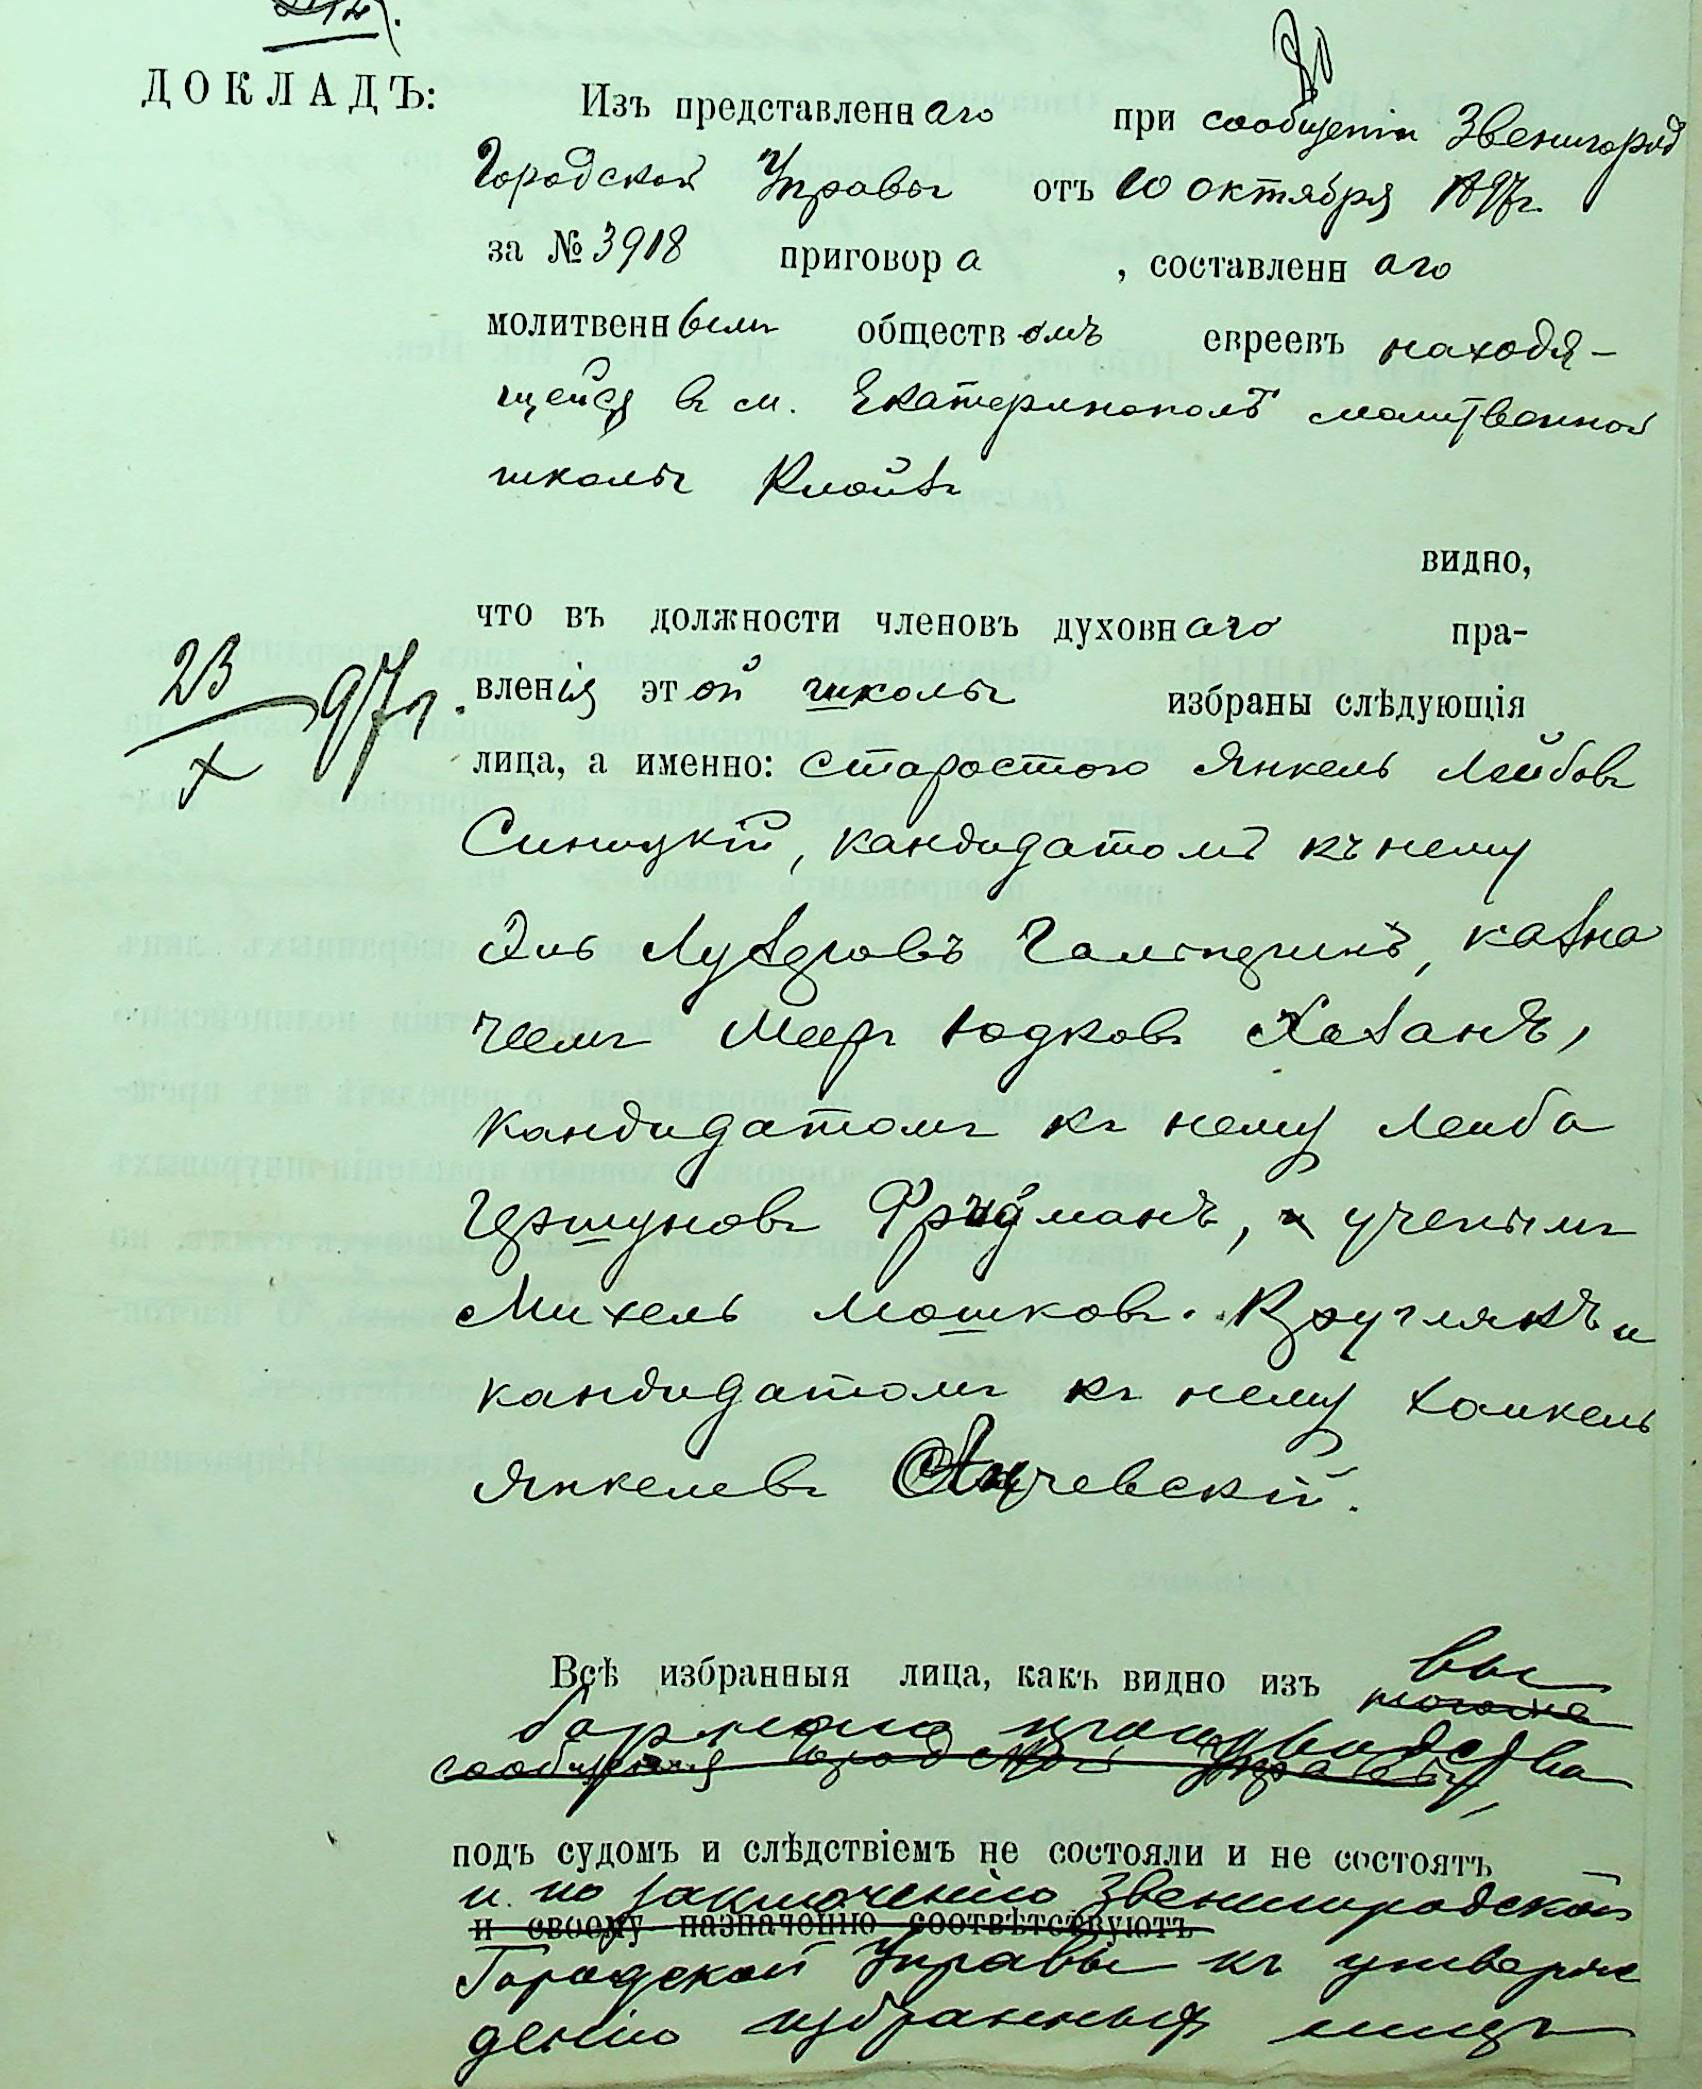 ДОКЛАДЪ:
Изъ представленнаго при сообщеніи Звенигород
Городской Управы отъ 10 октября 1897г.
за № 3918 приговора, составленнаго
молитвеннымъ обществомъ евреевъ находя-
щейся въ м. Екатеринополѣ молитвенной
школы Клойзъ
видно,
что въ должности членовъ духовнаго пра-
вленія этой школы избраны слѣдующія
23/X 97г.
лица, а именно: старостою Янкель Лейбовъ
Синицкій, кандидатомъ къ нему
Эль Лузеровъ Гальперинъ, казна
чеемъ Меер Юдковъ Хазанъ,
кандидатомъ къ нему Лейба
Гершуновъ Фридманъ, ученымъ
Михель Мошковъ Круглякъ и
кандидатомъ къ нему Хаикель
Янкелевъ чевскій.
Всѣ избранныя лица, какъ видно изъ вы
того же
борнаго производства
сообщенія Городской Управы,
подъ судомъ и слѣдствіемъ не состояли и не состоятъ
и по заключенію Звенигородской
и своему назначенію соотвѣтствуютъ
Городской Управы къ утверж
денію избранныхъ лицъ